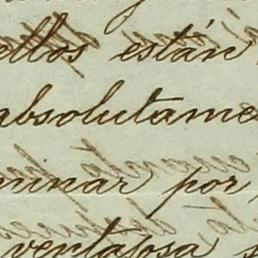 ellos están
absolutame
minar por
ventajosa s